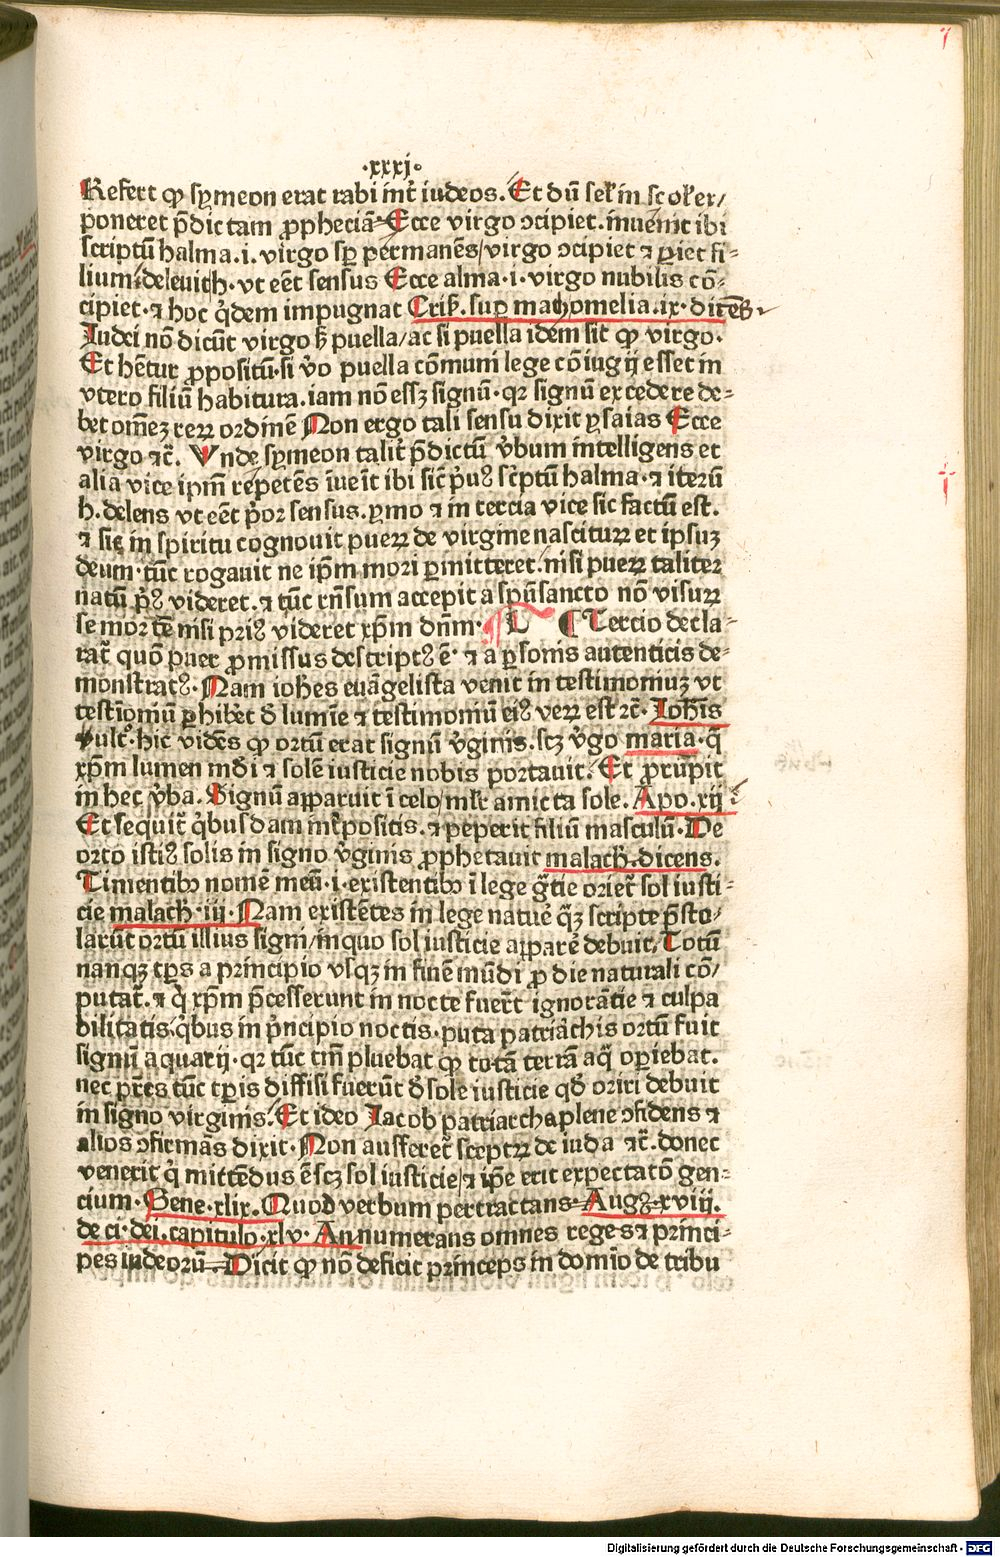 ·xxxj·
Refert ꝙ symeon erat rabi int̄ iudeos. Et dū sel' in scol' ex/
poneret p̄dictam ꝓpheciā Ecce virgo ↄcipiet. inuenit ibi
scriptū halma .i. virgo sꝑ permanēs/virgo ↄcipiet ⁊ ꝑiet fi⸗
lium: deleuit h. vt eēt sensus Ecce alma .i. virgo nubilis cō⸗
cipiet. ⁊ hoc q̇dem impugnat Crisꝭ. suꝑ mathomelia .ix. dicēs
Iudei nō dicūt virgo ꝭ puella/ac si puella idem sit ꝙ virgo.
Et hētur ꝓpositū. si v̄o puella cōmuni lege cōiugij esset in
vtero filiū habitura. iam nō essꝫ signū. qꝛ signū excedere de⸗
bet omēꝫ reꝝ ordinē Non ergo tali sensu dixit ysaias Ecce
virgo ⁊c̄. Vnde symeon talit̄ p̄dictū v̄bum intelligens et
aliā vice ipm̄ repetēs īueīt ibi sic̄ pꝰ sc̄ptū halma. ⁊ iterū
h. delens vt eēt p̄or sensus. ymo ⁊ in tercia vice sic factū est.
⁊ sic in spiritu cognouit pueꝝ de virgine nascituꝝ et ipsuꝫ
deum. tūc rogauit ne ipm̄ mori ꝑmitteret. nisi pueꝝ taliter
natū pꝰ videret. ⁊ tūc rn̄sum accepit a spū sancto nō visuꝝ
se mortē nisi priꝰ videret xp̄m dn̄m. L Tercio decla⸗
rat̄ quō puer ꝓmissus descriptꝰ ē. ⁊ a ꝑsonis autenticis de⸗
monstratꝰ. Nam ioh̄es euāgelista venit in testimoniuꝫ vt
testīoniū ꝑhibēt ð lumīe ⁊ testimoniū eiꝰ veꝝ est ⁊c̄. Ioh̄is
vlt̄. hic vidēs ꝙ ortū erat signū v̄ginis. scꝫ v̄go maria. q̄
xp̄m lumen mūdi ⁊ solē iusticie nobis portauit. Et prūpit
in hec v̄ba. Signū apparuit ī celo/mlr̄ amicta sole. Apo. xij
Et sequit̄ q̇busdam int̄positis. ⁊ peperit filiū masculū. De
orto istiꝰ solis in signo v̄ginis ꝓphetauit malach̄. dicens.
Timentibꝰ nomē meū .i. existentibꝰ ī lege gr̄tie oriet̄ sol iusti⸗
cie malach̄ .iij. Nam existētes in lege natur̄ q̇ꝫ scripte p̄sto/
larūt ortū illius signi/in quo sol iusticie apparē debuit. Totū
nanqꝫ tp̄s a principio vsqꝫ in finē mūdi ꝓ die naturali cō/
putat̄. ⁊ q̇ xp̄m p̄cesserunt in nocte fuer̄t ignorātie ⁊ culpa
bilitatis. q̇bus in p̄ncipio noctis. puta patriarchis ortū fuit
signū aquarij. qꝛ tūc tm̄ pluebat ꝙ totā terrā aq̄ oꝑiebat.
nec pr̄es tūc tp̄is diffisi fuerūt ð sole iusticie qð oriri debuit
in signo virginis. Et ideo Iacob patriarcha plene ↄfidens ⁊
alios ↄfirmās dixit. Non aufferet̄ sceptꝝ de iuda ⁊c̄. donec
venerit q̇ mittēdus ē scꝫ sol iusticie/⁊ ip̄e erit expectatō gen⸗
cium. Gene. xlix. Quod verbum pertractans. Augꝰ. xviij.
de ci. dei. capitulo. xlv. Annumerans omnes reges ⁊ princi⸗
pes iudeorū. Dicit ꝙ nō deficit princeps in domīo de tribu
Digitalisierung gefördert durch die Deutsche Forschungsgemeinschaft - DFG